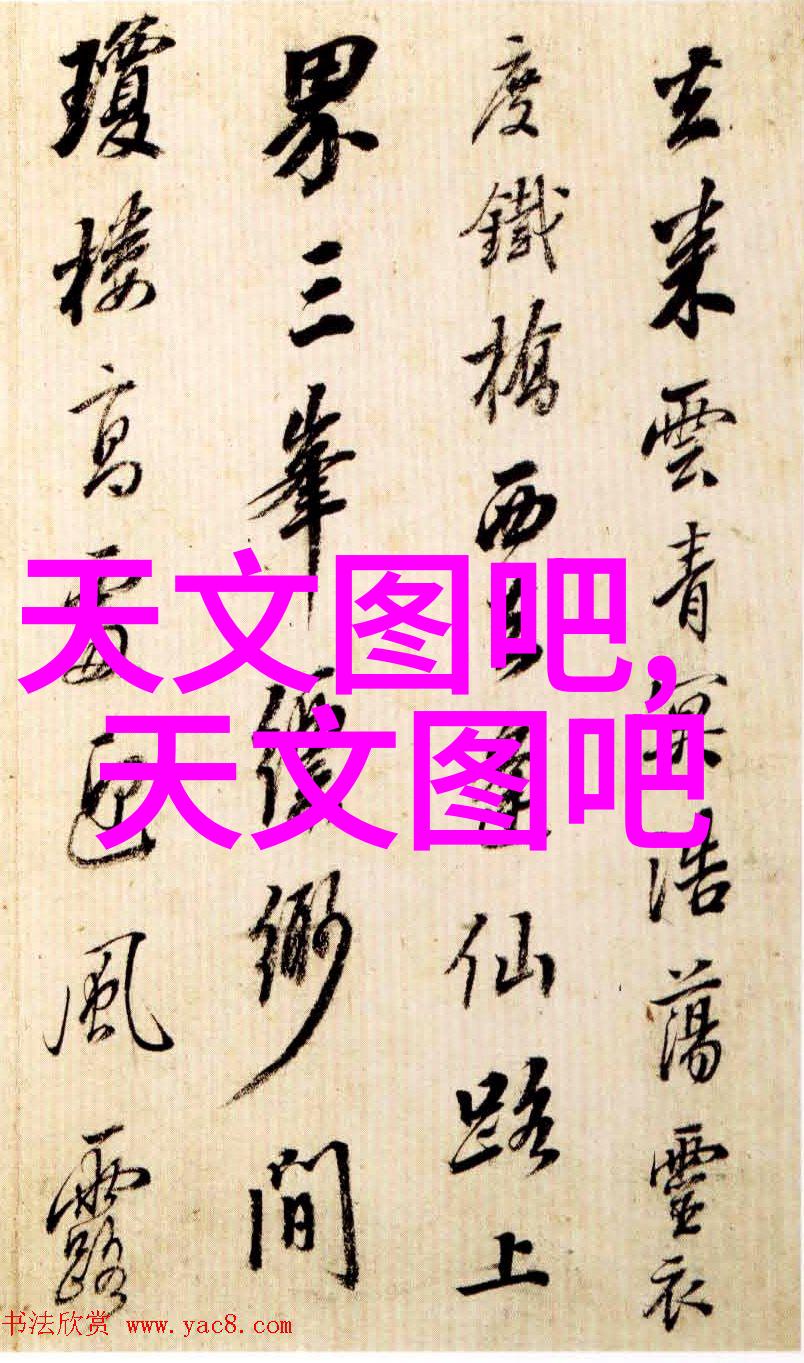 去来雲青冥浩蕩靈衣
度鐵橋西仙路上
界三峯縹緲間
瓊樓高風露
天文图吧,
天文图吧
书法欣赏 www.yac8.com